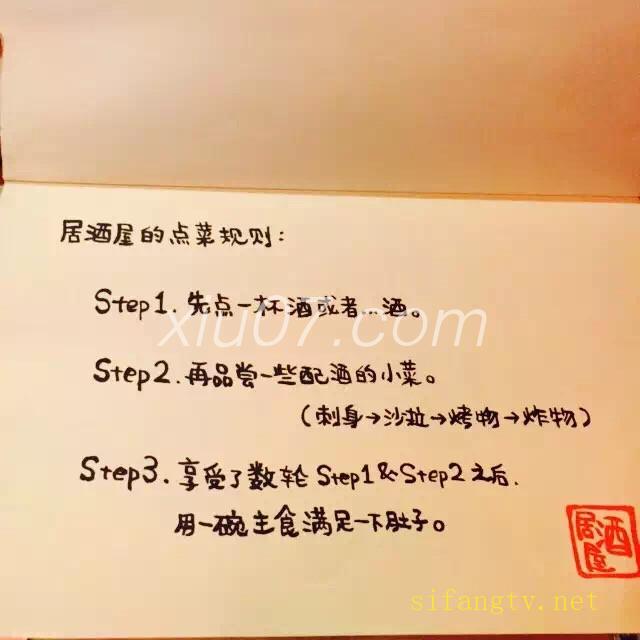 居酒屋的点菜规则:
Step1.先点一杯酒或者...酒。
xiu07.com
Step2.再品尝一些配酒的小菜。
(刺身→沙拉→烤物→炸物)
Step3.享受了数轮 Step1&Step2之后.
用一碗主食满足一下肚子。
居酒屋
sifangtv.net